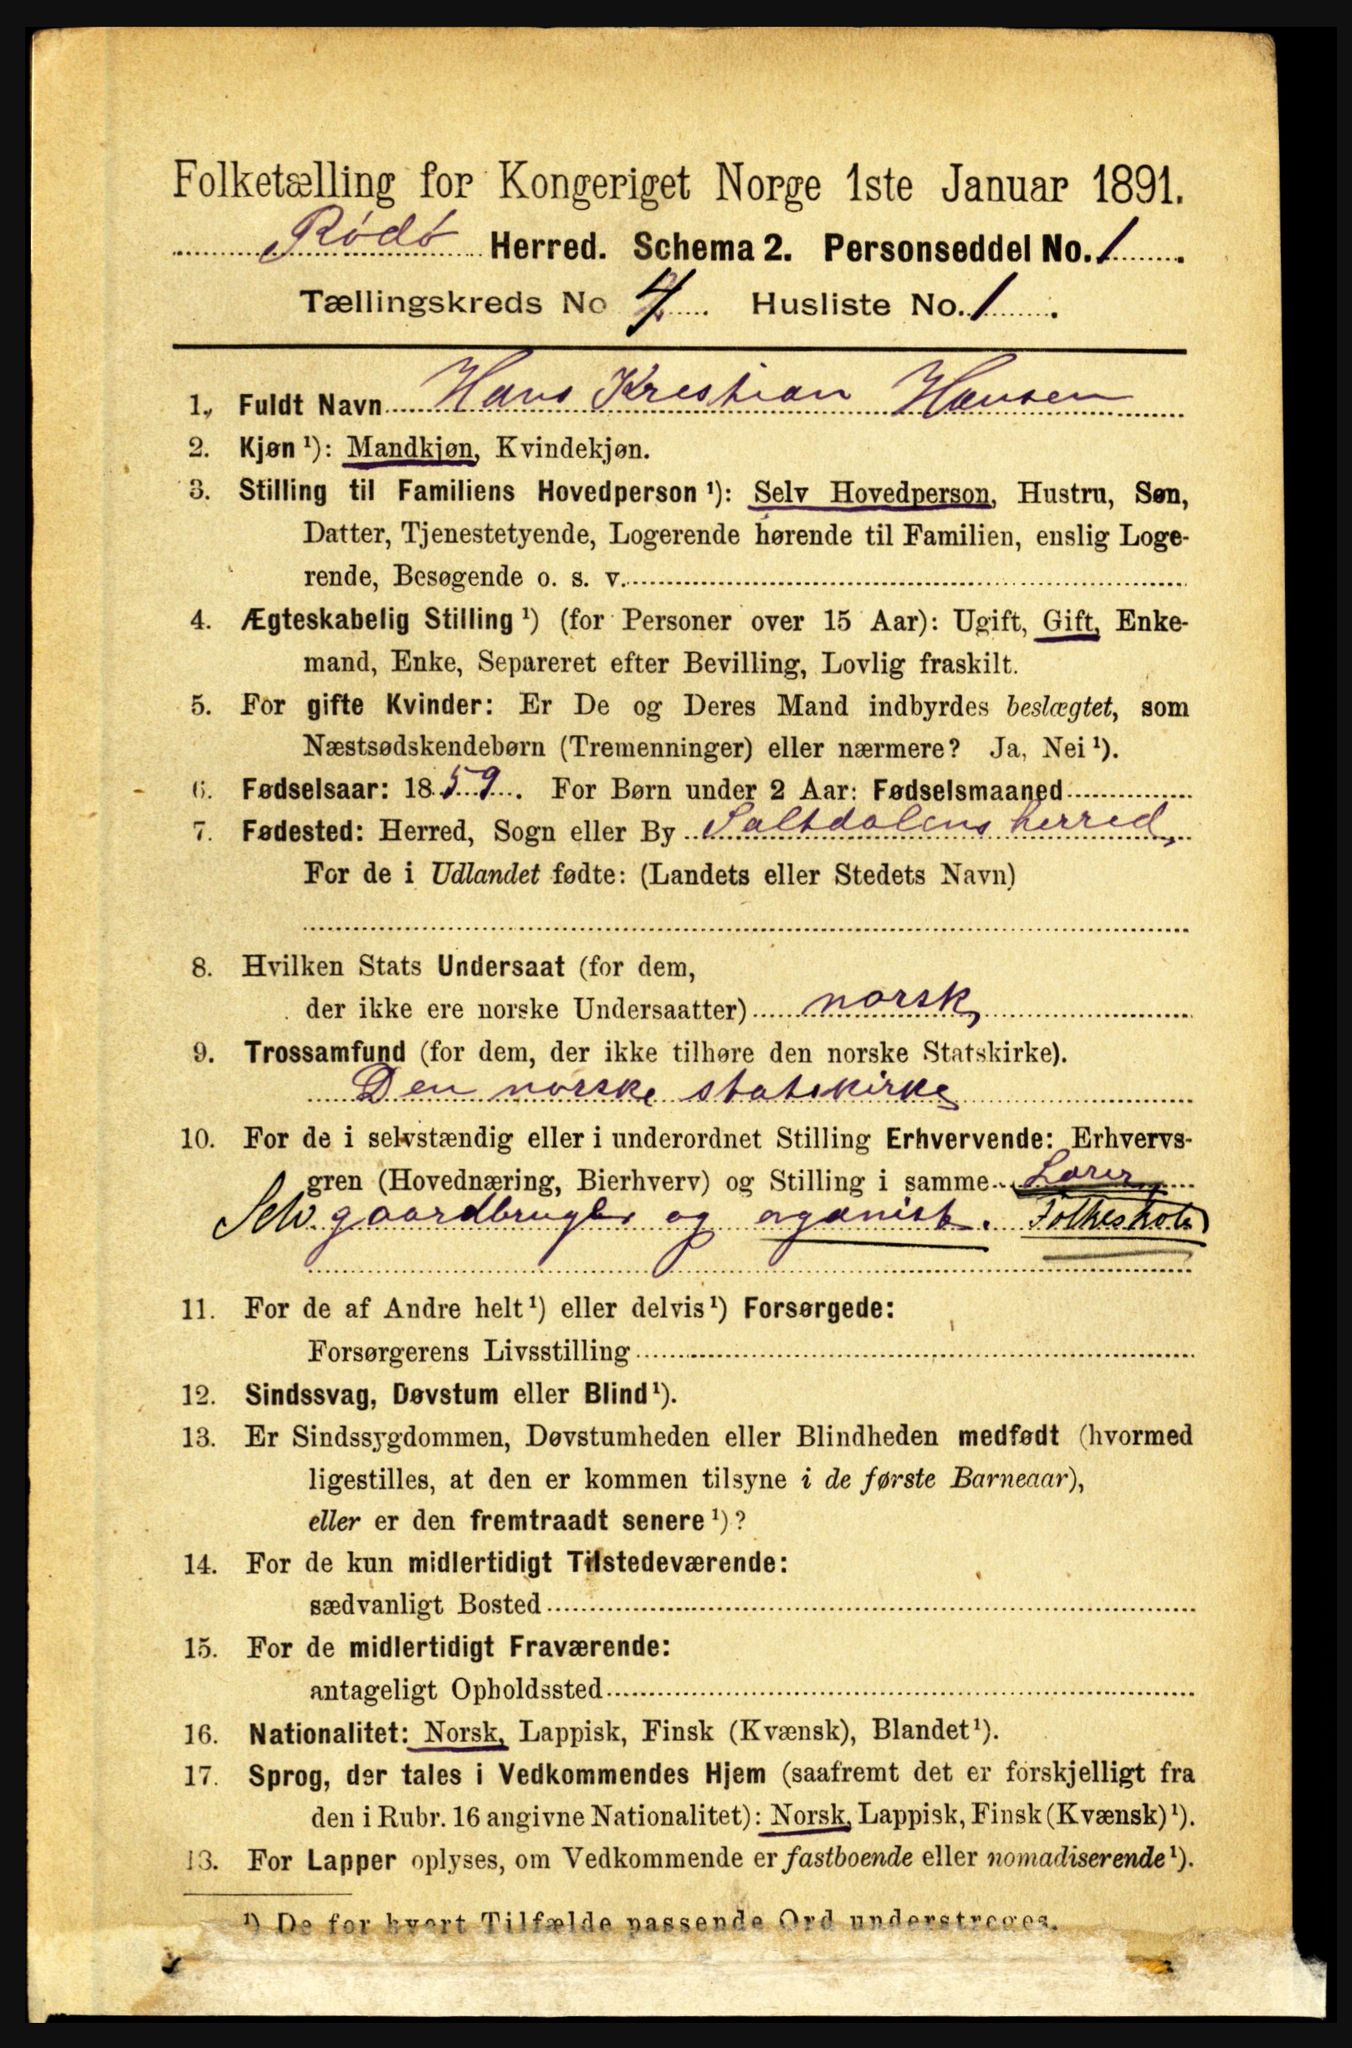 Folketælling for Kongeriget Norge 1ste Januar 1891.
Rödö Herred. Schema 2. Personseddel No. 1
Tællingskreds No 4. Husliste No. 1.
1. Fuldt Navn Hans Krestian Hansen
2. Kjøn ¹): Mandkjøn, Kvindekjøn.
3. Stilling til Familiens Hovedperson ¹): Selv Hovedperson, Hustru, Søn,
Datter, Tjenestetyende, Logerende hørende til Familien, enslig Loge-
rende, Besøgende o. s. v.
4. Ægteskabelig Stilling ¹) (for Personer over 15 Aar): Ugift, Gift, Enke-
mand, Enke, Separeret efter Bevilling, Lovlig fraskilt.
5. For gifte Kvinder: Er De og Deres Mand indbyrdes beslægtet, som
Næstsødskendebørn (Tremenninger) eller nærmere? Ja, Nei ¹).
6. Fødselsaar: 1859. For Børn under 2 Aar: Fødselsmaaned
7. Fødested: Herred, Sogn eller By Saltdalens herred,
For de i Udlandet fødte: (Landets eller Stedets Navn)
8. Hvilken Stats Undersaat (for dem,
der ikke ere norske Undersaatter) norsk,
9. Trossamfund (for dem, der ikke tilhøre den norske Statskirke).
Den norske statskirke
10. For de i selvstændig eller i underordnet Stilling Erhvervende: Erhvervs-
gren (Hovednæring, Bierhverv) og Stilling i samme Lærer
Selv gaardbruger og organist. Folkeskole
11. For de af Andre helt ¹) eller delvis ¹) Forsørgede:
Forsørgerens Livsstilling
12. Sindssvag, Døvstum eller Blind ¹).
13. Er Sindssygdommen, Døvstumheden eller Blindheden medfødt (hvormed
ligestilles, at den er kommen tilsyne i de første Barneaar),
eller er den fremtraadt senere ¹)?
14. For de kun midlertidigt Tilstedeværende:
sædvanligt Bosted
15. For de midlertidigt Fraværende:
antageligt Opholdssted
16. Nationalitet: Norsk, Lappisk, Finsk (Kvænsk), Blandet ¹).
17. Sprog, der tales i Vedkommendes Hjem (saafremt det er forskjelligt fra
den i Rubr. 16 angivne Nationalitet): Norsk, Lappisk, Finsk (Kvænsk) ¹).
18. For Lapper oplyses, om Vedkommende er fastboende eller nomadiserende ¹).
¹) De for hvert Tilfælde passende Ord understreges.